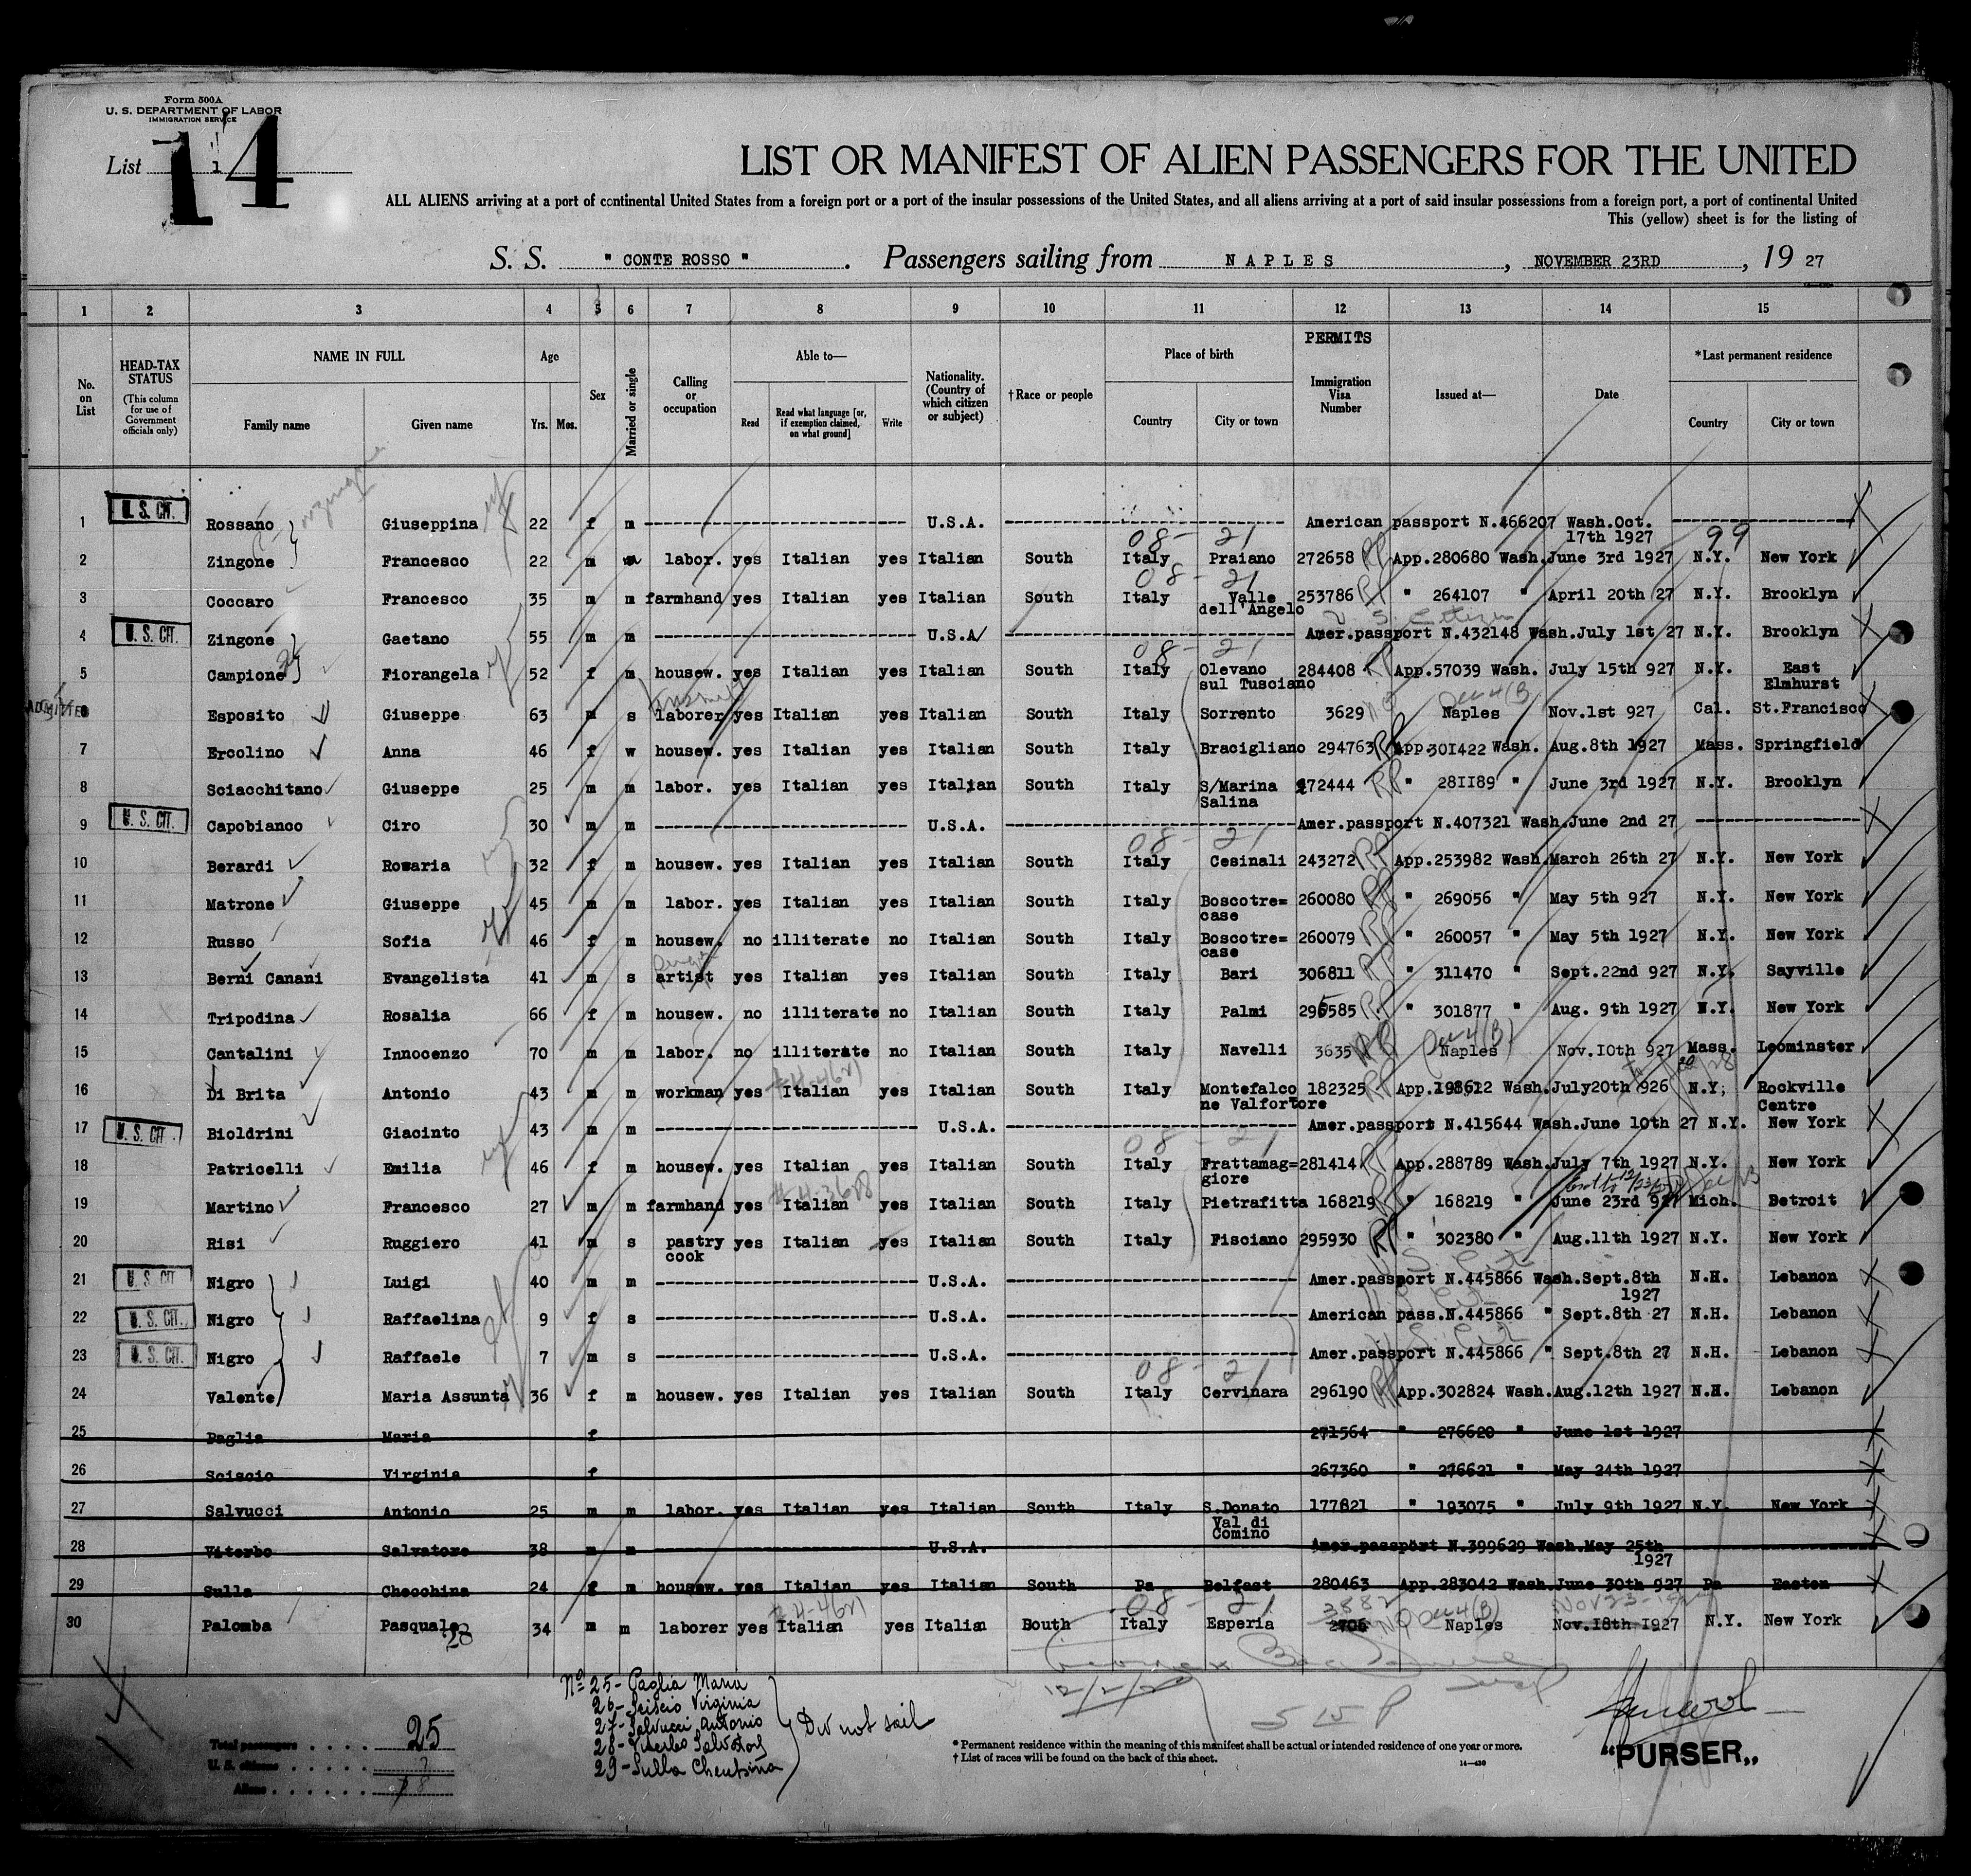 Form 500A
U. S. DEPARTMENT OF LABOR
IMMIGRATION SERVICE
List 1
14
LIST OR MANIFEST OF ALIEN PASSENGERS FOR THE UNITED
ALL ALIENS arriving at a port of continental United States from a foreign port or a port of the insular possessions of the United States, and all aliens arriving at a port of said insular possessions from a foreign port, a port of continental United
This (yellow) sheet is for the listing of
S. S. " CONTE ROSSO ". Passengers sailing from NAPLES, NOVEMBER 23RD, 19 27
1 2 3 4 5 6 7 8 9 10 11 12 13 14 15
No. on List
HEAD-TAX STATUS
(This column for use of Government officials only)
NAME IN FULL
Family name Given name
Age
Yrs. Mos.
Sex
Married or single
Calling or occupation
Able to—
Read
Read what language [or, if exemption claimed, on what ground]
Write
Nationality. (Country of which citizen or subject)
†Race or people
Place of birth
Country City or town
PERMITS
Immigration Visa Number
Issued at—
Date
*Last permanent residence
Country City or town
1 U. S. CIT. Rossano Giuseppina 22 f m U.S.A. American passport N.466207 Wash.Oct. 17th 1927
08-21 99
2 Zingone Francesco 22 m labor. yes Italian yes Italian South Italy Praiano 272658 App.280680 Wash. June 3rd 1927 N.Y. New York
08-21
3 Coccaro Francesco 35 m m farmhand yes Italian yes Italian South Italy Valle dell'Angelo 253786 " 264107 " April 20th 27 N.Y. Brooklyn
U. S. Citizen
4 U. S. CIT. Zingone Gaetano 55 m m U.S.A. Amer.passport N.432148 Wash.July 1st 27 N.Y. Brooklyn
08-21
5 Campione Fiorangela 52 f m housew. yes Italian yes Italian South Italy Olevano sul Tusciano 284408 App.57039 Wash. July 15th 927 N.Y. East Elmhurst
ADMITTED
6 Esposito Giuseppe 63 m s laborer yes Italian yes Italian South Italy Sorrento 3629 Naples Nov.1st 927 Cal. St.Francisco
7 Ercolino Anna 46 f w housew. yes Italian yes Italian South Italy Bracigliano 294763 App.301422 Wash. Aug.8th 1927 Mass. Springfield
8 Sciacchitano Giuseppe 25 m m labor. yes Italian yes Italian South Italy S/Marina Salina 272444 " 281189 " June 3rd 1927 N.Y. Brooklyn
9 U. S. CIT. Capobianco Ciro 30 m m U.S.A. Amer.passport N.407321 Wash.June 2nd 27
08-21
10 Berardi Rosaria 32 f m housew. yes Italian yes Italian South Italy Cesinali 243272 App.253982 Wash.March 26th 27 N.Y. New York
11 Matrone Giuseppe 45 m m labor. yes Italian yes Italian South Italy Boscotre=case 260080 " 269056 " May 5th 927 N.Y. New York
12 Russo Sofia 46 f m housew. no illiterate no Italian South Italy Boscotre=case 260079 " 260057 " May 5th 1927 N.Y. New York
13 Berni Canani Evangelista 41 m s artist yes Italian yes Italian South Italy Bari 306811 " 311470 " Sept.22nd 927 N.Y. Sayville
14 Tripodina Rosalia 66 f m housew. no illiterate no Italian South Italy Palmi 295585 " 301877 " Aug. 9th 1927 N.Y. New York
15 Cantalini Innocenzo 70 m m labor. no illiterate no Italian South Italy Navelli 3635 Naples Nov.10th 927 Mass. Leominster
16 Di Brita Antonio 43 m m workman yes Italian yes Italian South Italy Montefalco ne Valfortore 182325 App.198612 Wash.July20th 926 N.Y. Rockville Centre
17 U. S. CIT. Bioldrini Giacinto 43 m m U.S.A. Amer.passport N.415644 Wash.June 10th 27 N.Y. New York
08-21
18 Patricelli Emilia 46 f m housew. yes Italian yes Italian South Italy Frattamag=giore 281414 App.288789 Wash.July 7th 1927 N.Y. New York
19 Martino Francesco 27 m m farmhand yes Italian yes Italian South Italy Pietrafitta 168219 " 168219 " June 23rd 927 Mich. Detroit
20 Risi Ruggiero 41 m s pastry cook yes Italian yes Italian South Italy Fisciano 295930 " 302380 " Aug.11th 1927 N.Y. New York
21 U. S. CIT. Nigro Luigi 40 m m U.S.A. Amer.passport N.445866 Wash.Sept.8th 1927 N.H. Lebanon
22 U. S. CIT. Nigro Raffaelina 9 f s U.S.A. American pass.N.445866 " Sept.8th 27 N.H. Lebanon
23 U. S. CIT. Nigro Raffaele 7 m s U.S.A. Amer.passport N.445866 " Sept.8th 27 N.H. Lebanon
08-21
24 Valente Maria Assunta 36 f m housew. yes Italian yes Italian South Italy Cervinara 296190 App.302824 Wash.Aug.12th 1927 N.H. Lebanon
25 Paglia Maria f 271564 " 276620 " June 1st 1927
26 Sciscio Virginia f 267360 " 276621 " May 24th 1927
27 Salvucci Antonio 25 m m labor. yes Italian yes Italian South Italy S.Donato Val di Comino 177821 " 193075 " July 9th 1927 N.Y. New York
28 Viterbo Salvatore 38 m m U.S.A. Amer.passport N.399629 Wash.May 25th 1927
29 Sulla Checchina 24 f m housew. yes Italian yes Italian South Pa Belfast 280463 App.283042 Wash.June 30th 927 Pa Easton
08-21
30 Palomba Pasquale 34 m m laborer yes Italian yes Italian South Italy Esperia 3882 2706 Naples Nov.18th 1927 N.Y. New York
28
Nº 25- Paglia Maria
26- Sciscio Virginia
27- Salvucci Antonio
28- Viterbo Salvatore
29- Sulla Checchina
Did not sail
Total passengers 25
U. S. citizens 7
Aliens 18
* Permanent residence within the meaning of this manifest shall be actual or intended residence of one year or more.
† List of races will be found on the back of this sheet.
14—430
"PURSER„